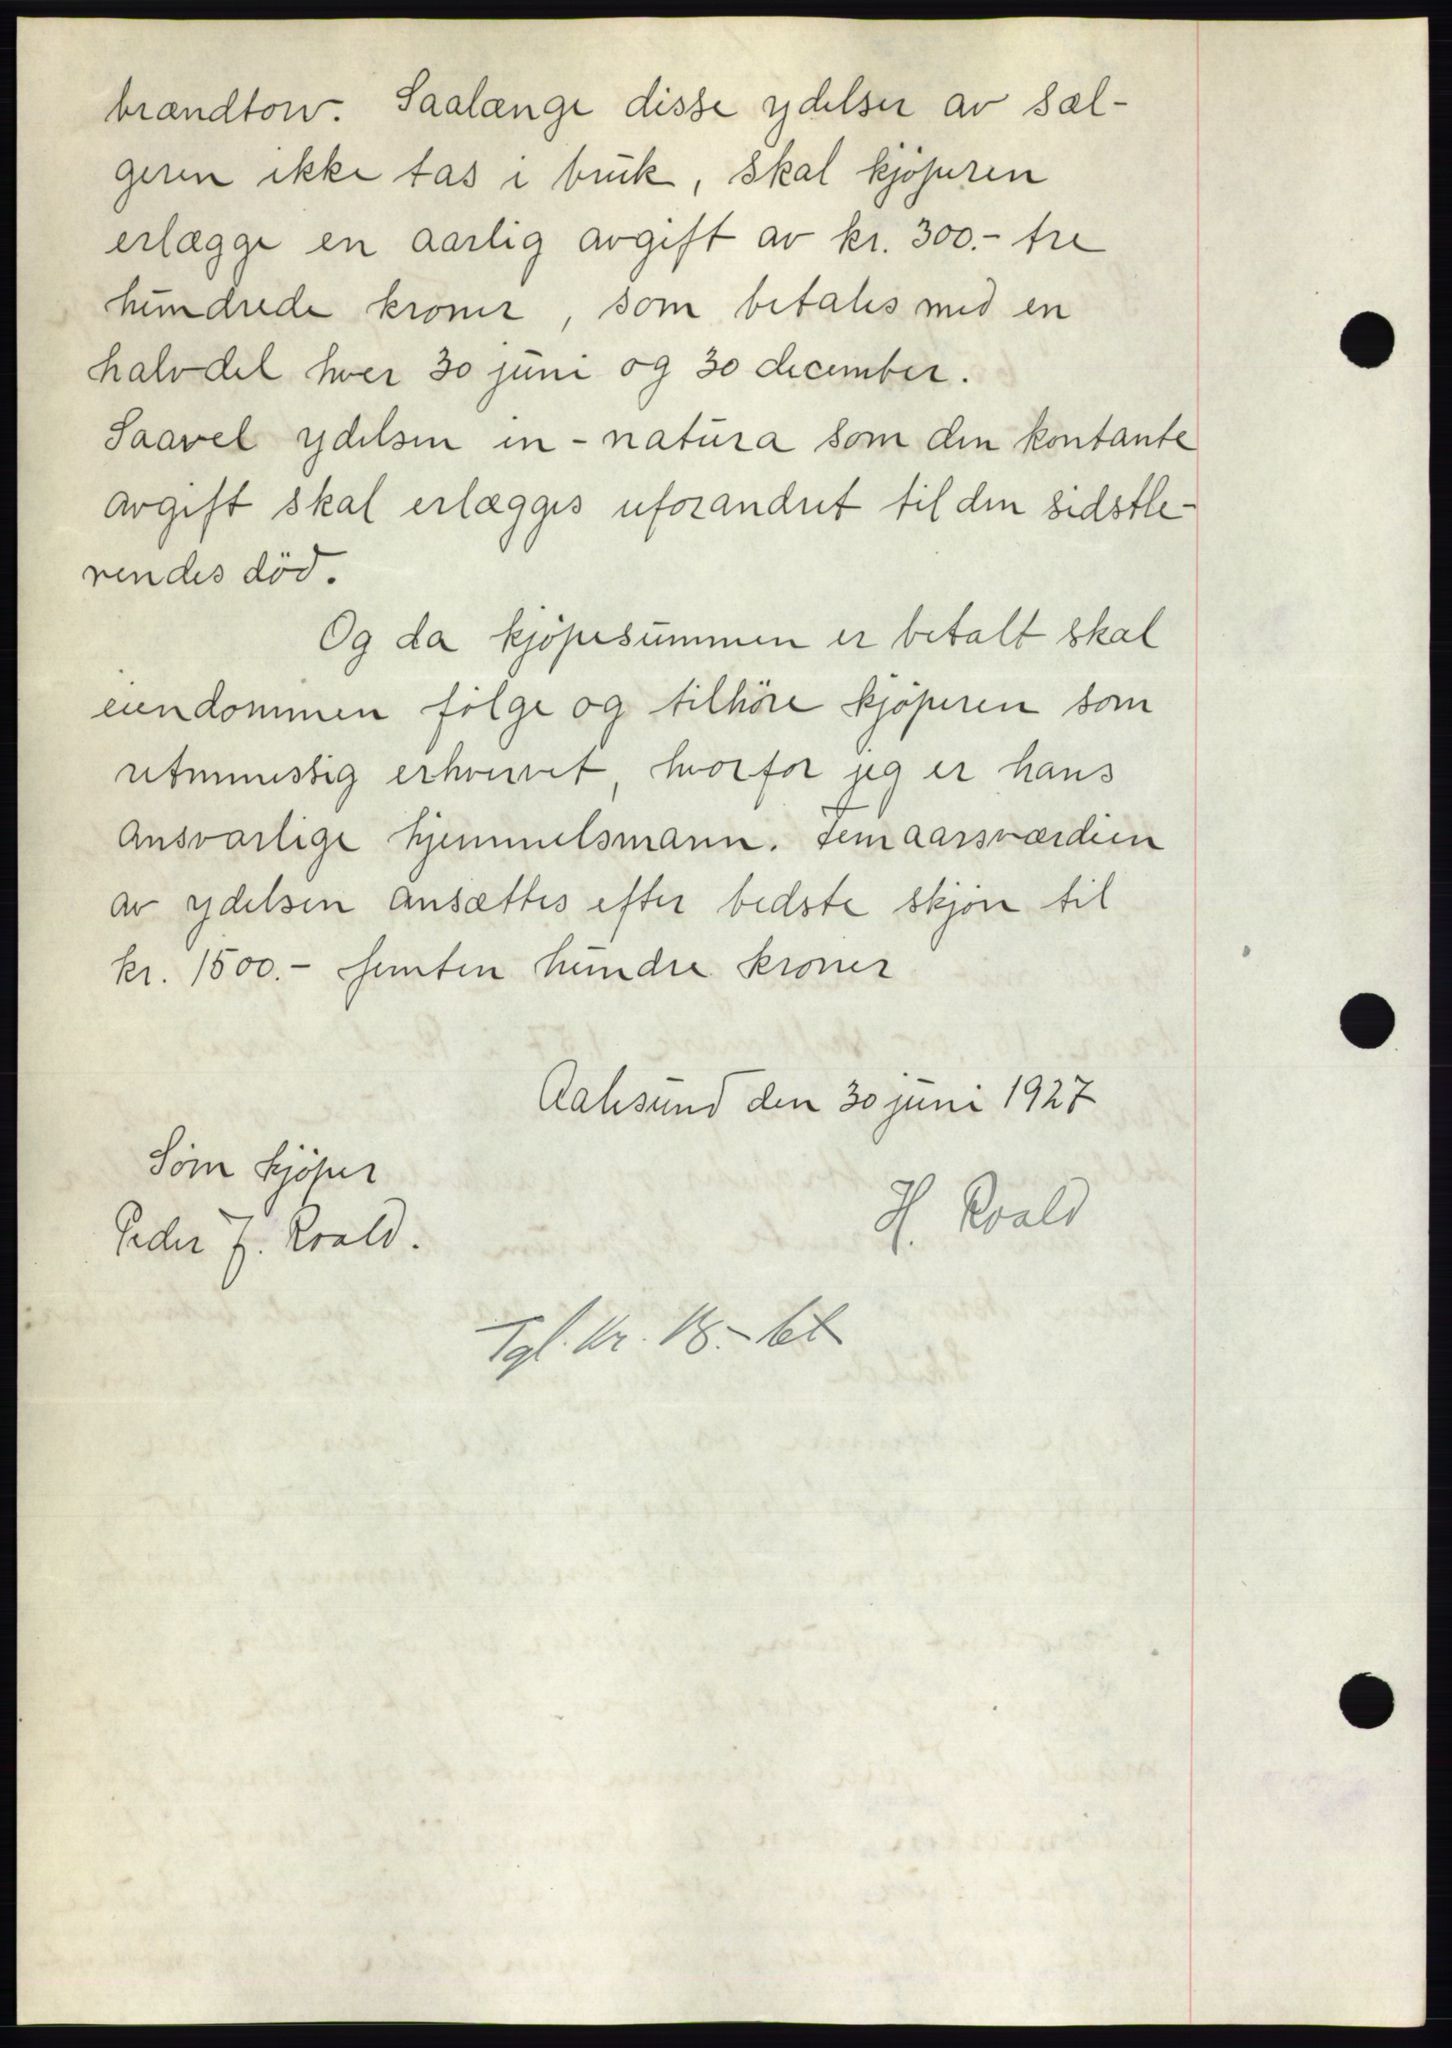 brændtorv. Saalænge disse ydelser av sæl-
geren ikke tas i bruk, skal kjöperen
erlægge en aarlig avgift av kr. 300.- tre
hundrede kroner, som betales med en
halvdel hver 30 juni og 30 december.
Saavel ydelsen in-natura som den kontante
avgift skal erlægges uforandret til den sidstle-
vendes död.
Og da kjöpesummen er betalt skal
eiendommen fölge og tilhöre kjöperen som
retmessig erhvervet, hvorfor jeg er hans
ansvarlige hjemmelsmann. Femaarsværdien
av ydelsen ansættes efter bedste skjön til
kr. 1500.- femten hundre kroner
Aalesund den 30 juni 1927
Som kjöper
H. Roald
Peder J. Roald.
Tgl. kr. 18.- bet